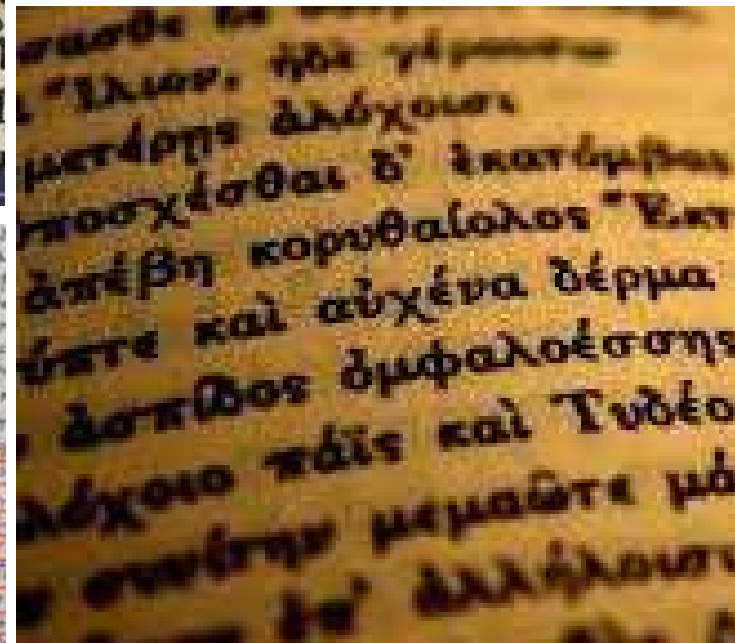 Ἴλιον, ἠδὲ γέρουσιν
μετέρῃς ἀλόχοισι
ὑποσχέσθαι δ' ἑκατόμβας
ἀπέβη κορυθαίολος Ἕκτ
ύπτε καὶ αὐχένα δέρμα
ἀσπίδος ὀμφαλοέσσης
λόχοιο πάϊς καὶ Τυδέο
συνίτην μεμαῶτε μά
ἐπ' ἀλλήλοισι